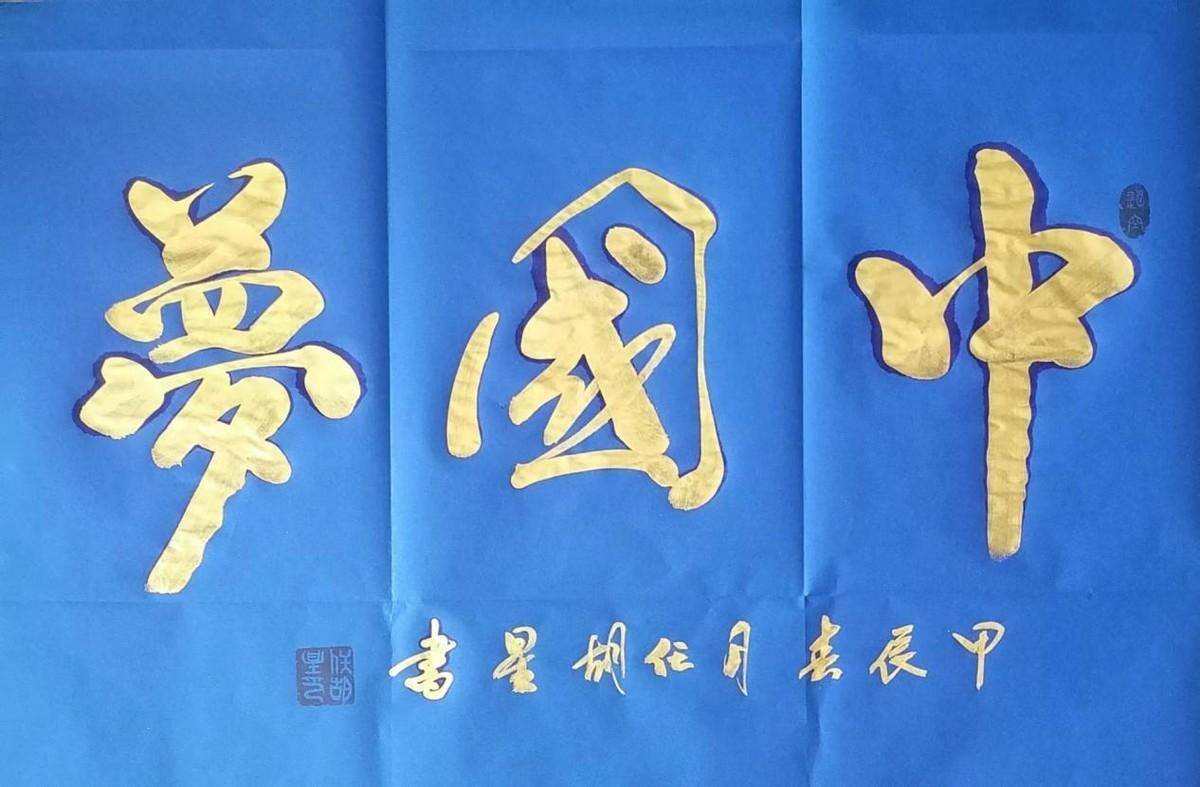 中國夢
甲辰春月任胡星書